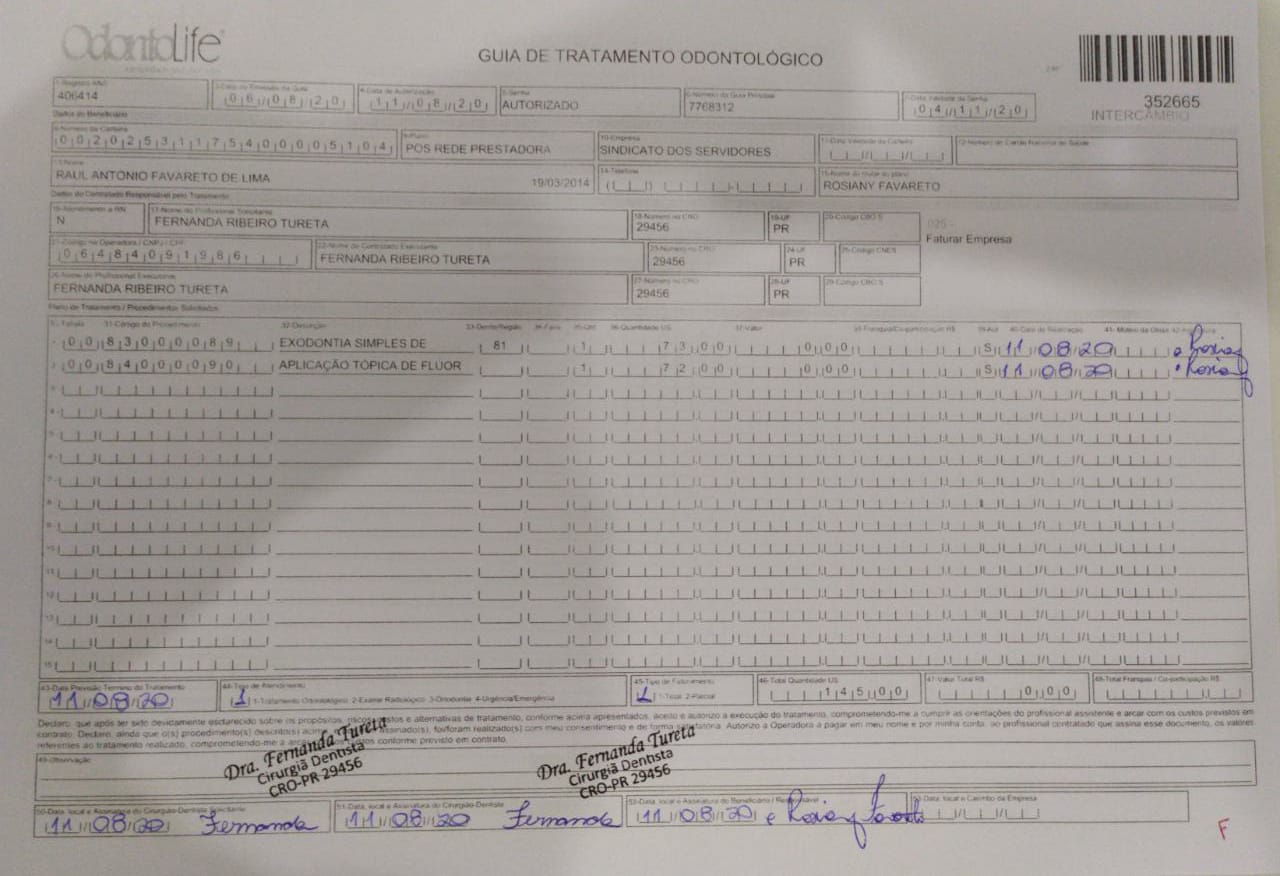 OdontoLife
GUIA DE TRATAMENTO ODONTOLÓGICO
352665
INTERCÂMBIO
1-Registro ANS
406414
3-Data de Emissão da Guia
06/08/20
4-Data de Autorização
11/08/20
5-Senha
AUTORIZADO
6-Número da Guia Principal
7768312
7-Data Validade da Senha
04/11/20
Dados do Beneficiário
8-Número da Carteira
00202531175400005104
9-Plano
POS REDE PRESTADORA
10-Empresa
SINDICATO DOS SERVIDORES
11-Data Validade da Carteira
12-Número do Cartão Nacional de Saúde
13-Nome
RAUL ANTONIO FAVARETO DE LIMA
19/03/2014
14-Telefone
15-Nome do titular do plano
ROSIANY FAVARETO
Dados do Contratado Responsável pelo Tratamento
16-Atendimento a RN
N
17-Nome do Profissional Solicitante
FERNANDA RIBEIRO TURETA
18-Número no CRO
29456
19-UF
PR
20-Código CBO S
025 -
Faturar Empresa
21-Código na Operadora / CNPJ / CPF
06484091986
22-Nome do Contratado Executante
FERNANDA RIBEIRO TURETA
23-Número no CRO
29456
24-UF
PR
25-Código CNES
26-Nome do Profissional Executante
FERNANDA RIBEIRO TURETA
27-Número no CRO
29456
28-UF
PR
29-Código CBO S
Plano de Tratamento / Procedimentos Solicitados
30-Tabela 31-Código do Procedimento 32-Descrição 33-Dente/Região 34-Face 35-Qtd 36-Quantidade US 37-Valor 38-Franquia/Co-participação R$ 39-Aut 40-Data de Realização 41-Motivo da Glosa 42-Assinatura
1- 00 83000089 EXODONTIA SIMPLES DE 81 1 7300 000 S 11/08/20 Rosiany
2- 00 84000090 APLICAÇÃO TÓPICA DE FLUOR 1 7200 000 S 11/08/20 Rosiany
3-
4-
5-
6-
7-
8-
9-
10-
11-
12-
13-
14-
15-
43-Data Previsão Término do Tratamento
11/08/20
44-Tipo de Atendimento
1 1-Tratamento Odontológico 2-Exame Radiológico 3-Ortodontia 4-Urgência/Emergência
45-Tipo de Faturamento
1 1-Total 2-Parcial
46-Total Quantidade US
14500
47-Valor Total R$
000
48-Total Franquia / Co-participação R$
Declaro, que após ter sido devidamente esclarecido sobre os propósitos, riscos, custos e alternativas de tratamento, conforme acima apresentados, aceito e autorizo a execução do tratamento, comprometendo-me a cumprir as orientações do profissional assistente e arcar com os custos previstos em
contrato. Declaro, ainda que o(s) procedimento(s) descrito(s) acima, assinado(s), foi/foram realizado(s) com meu consentimento e de forma satisfatória. Autorizo a Operadora a pagar em meu nome e por minha conta, ao profissional contratado que assina esse documento, os valores
referentes ao tratamento realizado, comprometendo-me a arcar custos conforme previsto em contrato.
49-Observação
Dra. Fernanda Tureta
Cirurgiã Dentista
CRO-PR 29456
Dra. Fernanda Tureta
Cirurgiã Dentista
CRO-PR 29456
50-Data, local e Assinatura do Cirurgião-Dentista Solicitante
11/08/20 Fernanda
51-Data, local e Assinatura do Cirurgião-Dentista
11/08/20 Fernanda
52-Data, local e Assinatura do Beneficiário / Responsável
11/08/20 Rosiany Favareto
53-Data, local e Carimbo da Empresa
F